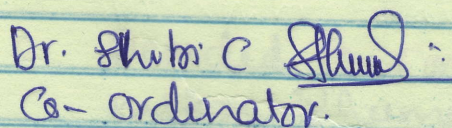 Dr. Shubi C
Co-ordinator.